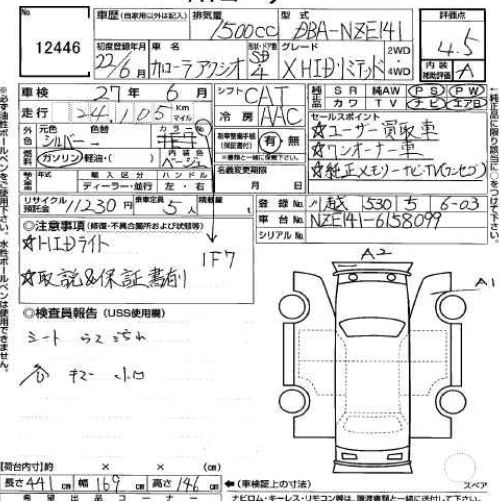 No
12446
車歴 (自家用以外は記入)
排気量
1500cc
型式
DBA-NZE141
評価点
4.5
初度登録年月
22/6月
車名
カローラアクシオ
形状・ドア数
SD/4
グレード
X HIDリミテッド
2WD
4WD
内装
補助評価
A
車検
27年 6月
シフト
CAT
純正品
SR 純AW PS PW
カワ TV ナビ エアB
走行
24,105
Km
マイル
冷房
AAC
セールスポイント
☆ユーザー買取車
☆ワンオーナー車
☆純正メモリーナビ・TV(ワンセグ)
外色
元色
シルバー
色替
カラーNo
燃料
ガソリン・軽油・( )
内装色
ベージュ
有・無
※書類と一緒に保管下さい。
輸入区分
ハンドル
ディーラー・並行
左・右
名義変更期限
月 日
リサイクル預託金
11230円
乗車定員
5人
積載量
登録No
川越 530 ち 6-03
車台No
NZE141-6158099
シリアルNo
◎注意事項 (修復・不具合箇所および状態等)
☆HIDライト
1F7
☆取説&保証書有り
◎検査員報告 (USS使用欄)
シート うス汚れ
各 キズ 小凹
A2
A1
【荷台内寸】約 × × (cm)
長さ 441 cm 幅 169 cm 高さ 146 cm
←(車検証上の寸法)
スペア
希望出品コーナー
ナビロム・キーレス・リモコン等は、譲渡書類と一緒に送付下さい。
※必ず油性ボールペンをご使用下さい。水性ボールペンは使用できません。
純正品に限り該当に○をつけて下さい。